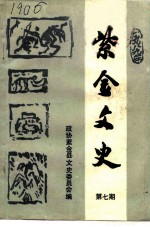 1906
紫金文史
政协紫金县文史委员会编
第七期